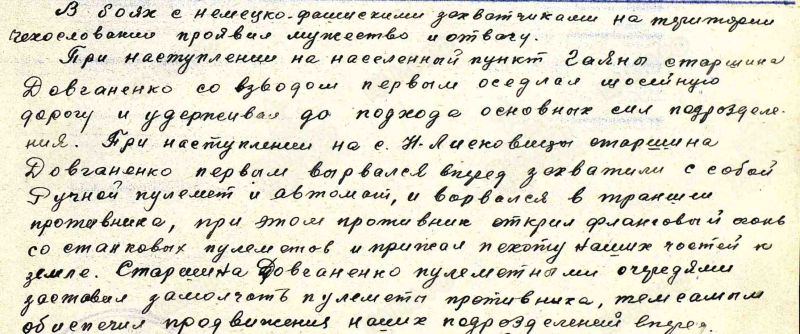 В боях с немецко-фашискими захватчиками на територии
Чехословакии проявил мужество и отвагу.
При наступлении на населенный пункт Гаяны старшина
Довганенко со взводом первым оседлал шосейную
дорогу и удерживал до подхода основных сил подразделе-
ния. При наступлении на с. Н-Лисковицы старшина
Довганенко первым вырвался вперед захватили с собой
Ручной пулемет и автомат, и ворвался в траншеи
противника, при этом противник открил фланговый огонь
со станковых пулеметов и прижал пехоту наших частей к
земле. Старшина Довганенко пулеметными очередями
заставил замолчать пулеметы противника, тем самым
обиспечил продвижения наших подразделений вперед.